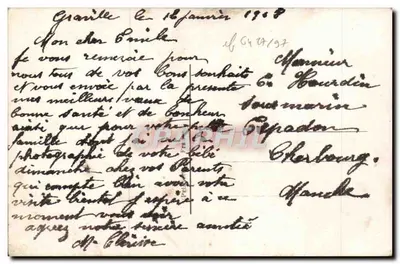 Graville le 12 janvier 1908
Mon cher Emile
Je vous remercie pour
nous tous de vos bons souhaits
et vous envoie par la presente
mes meilleurs vœux de
bonne santé et de bonheur
ainsi que pour votre petite
famille dont j'ai vu
photographié de votre bébé
dimanche chez vos Parents
qui compte bien avoir votre
visite bientot j'espère à ce
moment vous voir
agreez notre sincère amitié
Monsieur
E. Hourdin
sous marin
Papadon
Cherbourg.
Manche
CARTORUM